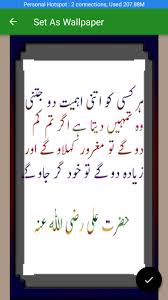 Personal Hotspot : 2 connections, Used 207.88M
Set As Wallpaper
ہر کسی کو اتنی اہمیت دو جتنی
وہ تمہیں دیتا ہے اگر تم کم
دو گے تو مغرور کہلاو گے اور
زیادہ دو گے تو خود گر جاو گے
حضرت علی رضی اللہ عنہ